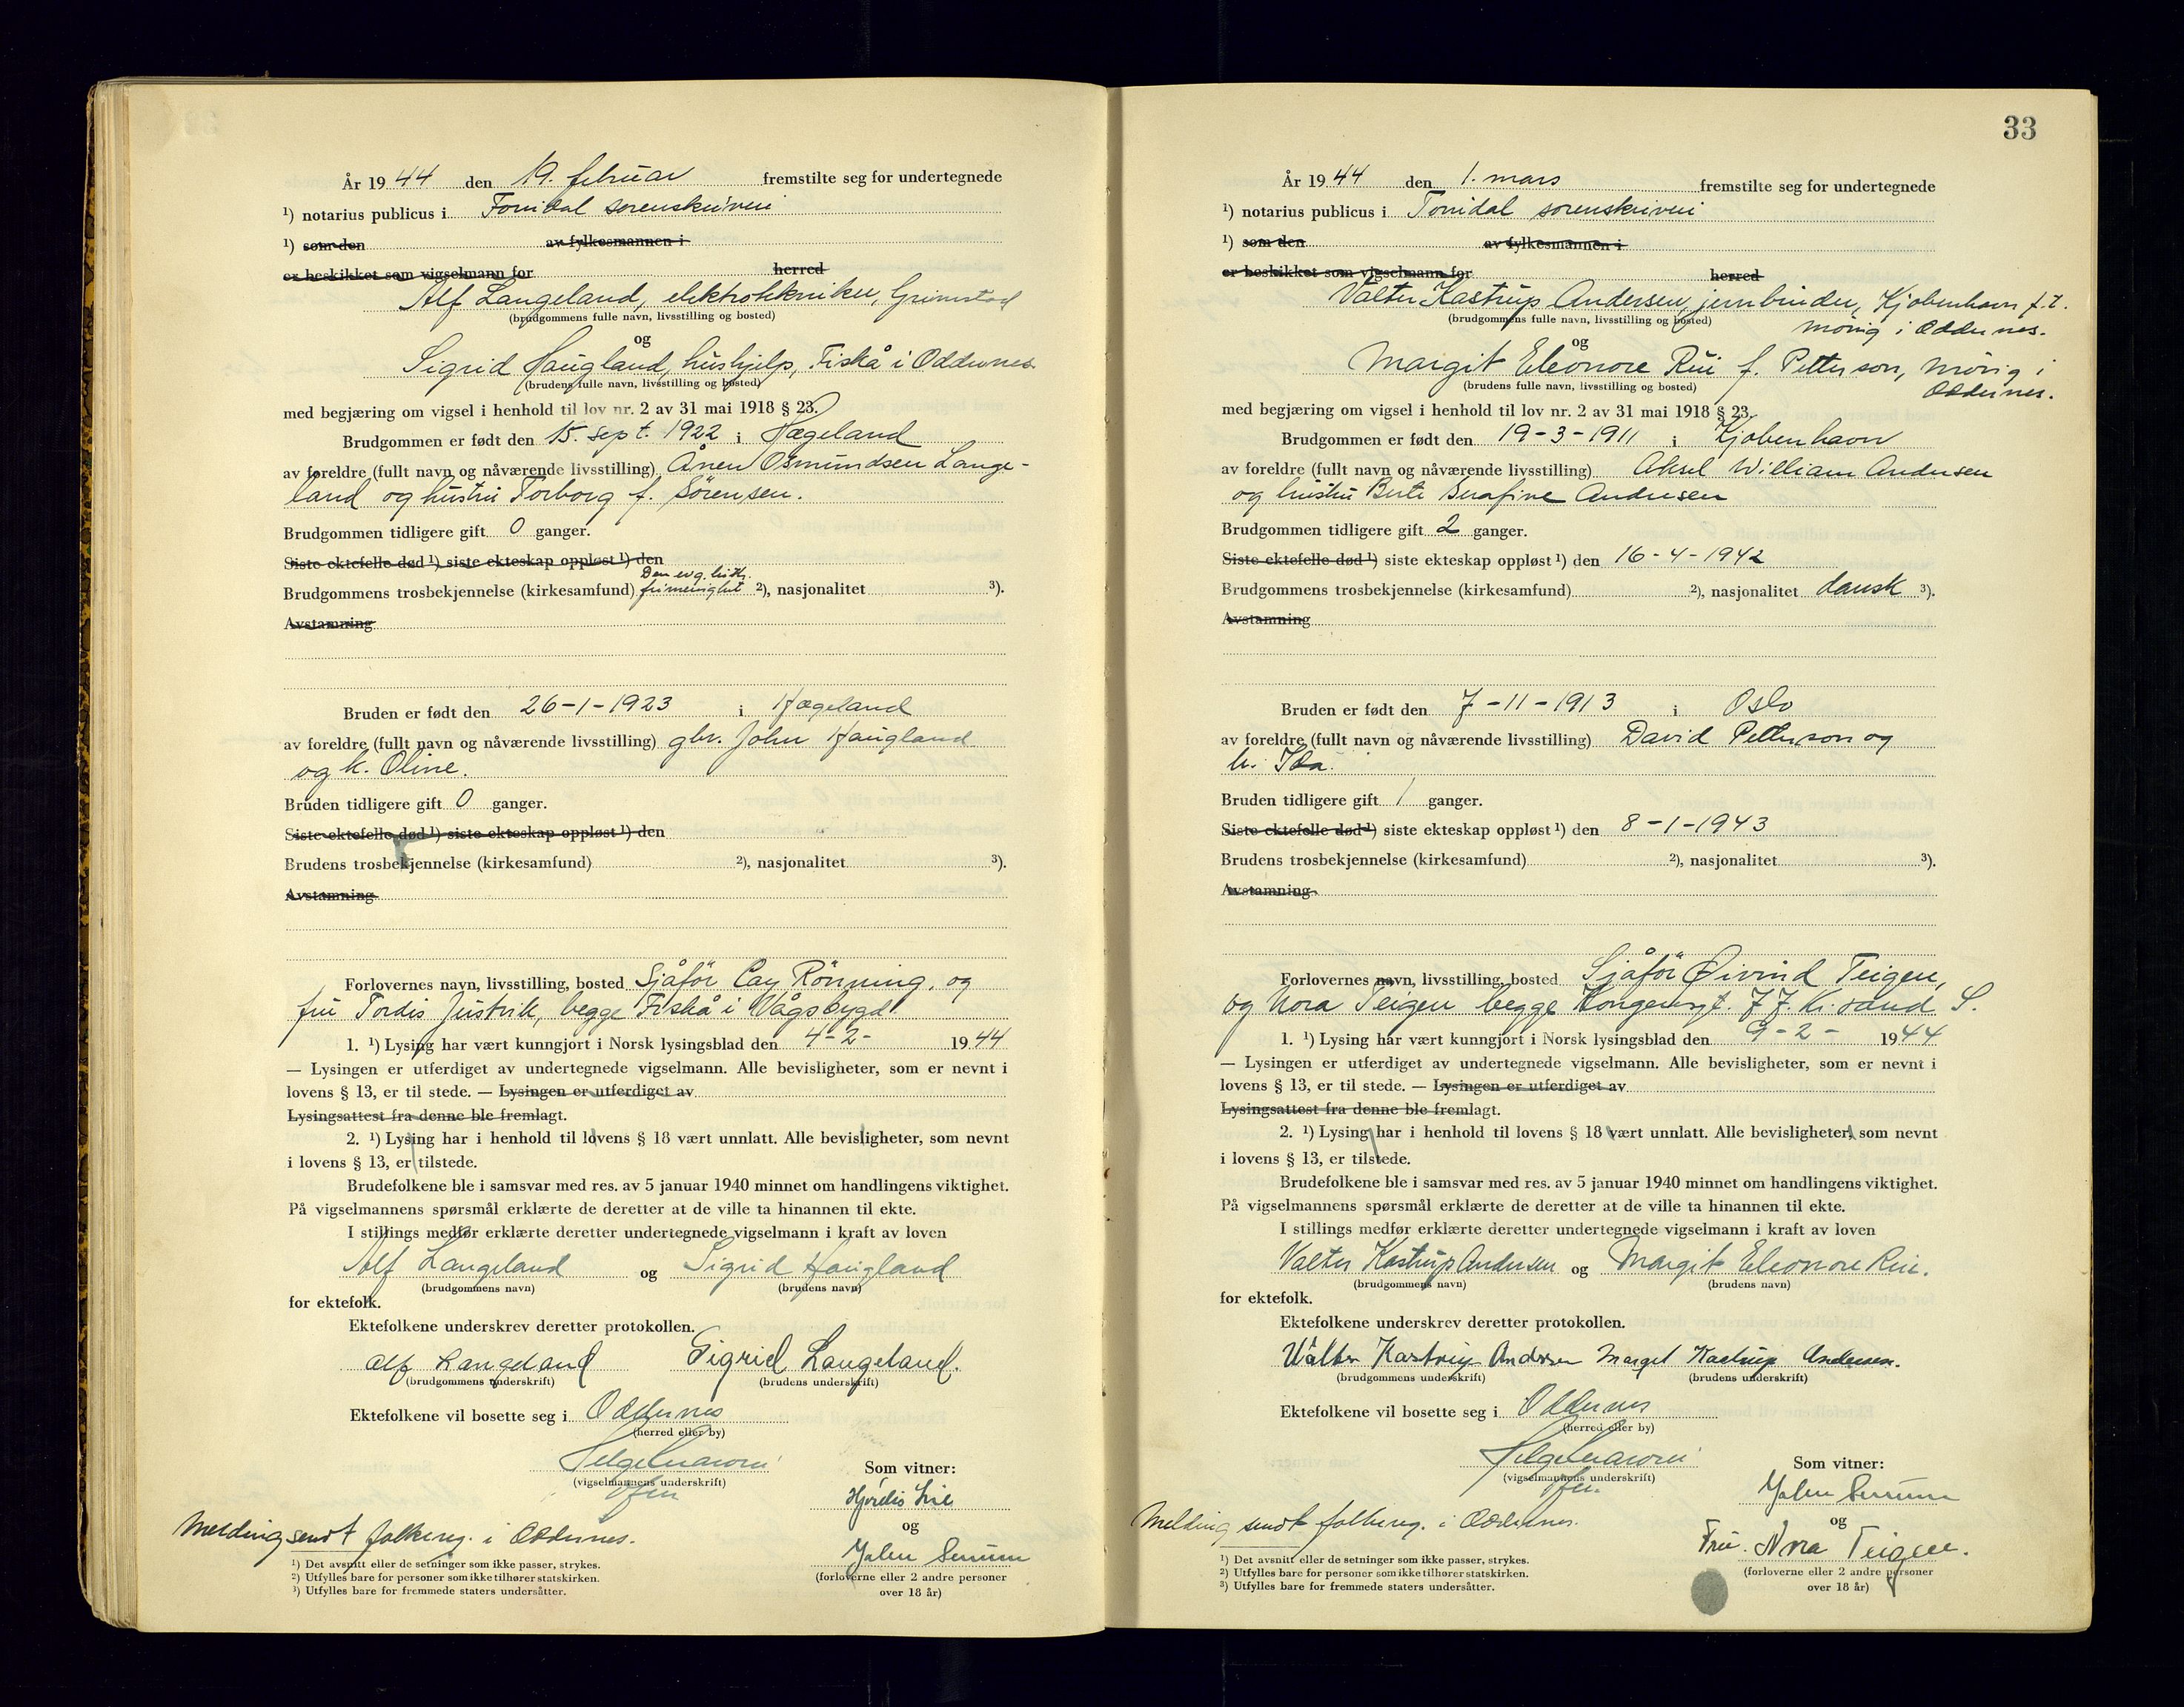 År 1944 den 19. februar fremstilte seg for undertegnede
1) notarius publicus i Torridal sorenskriveri
1) som den av fylkesmannen i
er beskikket som vigselmann for herred
Alf Langeland, elektrotekniker, Grimstad
(brudgommens fulle navn, livsstilling og bosted)
og
Sigrid Haugland, hushjelp, Fiskå i Oddernes
(brudens fulle navn, livsstilling og bosted)
med begjæring om vigsel i henhold til lov nr. 2 av 31 mai 1918 § 23.
Brudgommen er født den 15. sept. 1922 i Hægeland
av foreldre (fullt navn og nåværende livsstilling) Ånen Osmundsen Lange-
land og hustru Torborg f. Sørensen.
Brudgommen tidligere gift 0 ganger.
Siste ektefelle død 1) siste ekteskap oppløst 1) den
Den evg. luth.
Brudgommens trosbekjennelse (kirkesamfund) frimenighet 2), nasjonalitet 3).
Avstamning
Bruden er født den 26-1-1923 i Hægeland
av foreldre (fullt navn og nåværende livsstilling) gbr. John Haugland
og h. Oline.
Bruden tidligere gift 0 ganger.
Siste ektefelle død 1) siste ekteskap oppløst 1) den
Brudens trosbekjennelse (kirkesamfund) 2), nasjonalitet 3).
Avstamning
Forlovernes navn, livsstilling, bosted Sjåfør Cay Rönning, og
fru Tordis Justvik, begge Fiskå i Vågsbygd
1. 1) Lysing har vært kunngjort i Norsk lysingsblad den 4-2- 1944
— Lysingen er utferdiget av undertegnede vigselmann. Alle bevisligheter, som er nevnt i
lovens § 13, er til stede. — Lysingen er utferdiget av
Lysingsattest fra denne ble fremlagt.
2. 1) Lysing har i henhold til lovens § 18 vært unnlatt. Alle bevisligheter, som nevnt
i lovens § 13, er tilstede.
Brudefolkene ble i samsvar med res. av 5 januar 1940 minnet om handlingens viktighet.
På vigselmannens spørsmål erklærte de deretter at de ville ta hinannen til ekte.
I stillings medfør erklærte deretter undertegnede vigselmann i kraft av loven
Alf Langeland og Sigrid Haugland
(brudgommens navn) (brudens navn)
for ektefolk.
Ektefolkene underskrev deretter protokollen.
Alf Langeland Sigrid Langeland.
(brudgommens underskrift) (brudens underskrift)
Ektefolkene vil bosette seg i Oddernes
(herred eller by)
(vigselmannens underskrift)
Som vitner:
Hjördis Lie
og
(forloverne eller 2 andre personer
over 18 år)
Melding sendt folkereg. i Oddernes.
1) Det avsnitt eller de setninger som ikke passer, strykes.
2) Utfylles bare for personer som ikke tilhører statskirken.
3) Utfylles bare for fremmede staters undersåtter.
33
År 1944 den 1. mars fremstilte seg for undertegnede
1) notarius publicus i Torridal sorenskriveri
1) som den av fylkesmannen i
er beskikket som vigselmann for herred
Valter Kastrup Andersen, jernbinder, Kjøbenhavn f.t.
(brudgommens fulle navn, livsstilling og bosted)
Mörig i Oddernes.
og
Margit Eleonore Rui f. Petterson, Mörig i
(brudens fulle navn, livsstilling og bosted)
Oddernes.
med begjæring om vigsel i henhold til lov nr. 2 av 31 mai 1918 § 23.
Brudgommen er født den 19-3-1911 i Kjøbenhavn
av foreldre (fullt navn og nåværende livsstilling) Aksel William Andersen
og hustru Berte Serafine Andersen
Brudgommen tidligere gift 2 ganger.
Siste ektefelle død 1) siste ekteskap oppløst 1) den 16-4-1942
Brudgommens trosbekjennelse (kirkesamfund) 2), nasjonalitet dansk 3).
Avstamning
Bruden er født den 7-11-1913 i Oslo
av foreldre (fullt navn og nåværende livsstilling) David Petterson og
h. Ida.
Bruden tidligere gift 1 ganger.
Siste ektefelle død 1) siste ekteskap oppløst 1) den 8-1-1943
Brudens trosbekjennelse (kirkesamfund) 2), nasjonalitet 3).
Avstamning
Forlovernes navn, livsstilling, bosted Sjåför Øivind Teigen,
og Nora Teigen begge Kongensgt. 77. Kr.sand S.
1. 1) Lysing har vært kunngjort i Norsk lysingsblad den 9-2- 1944
— Lysingen er utferdiget av undertegnede vigselmann. Alle bevisligheter, som er nevnt i
lovens § 13, er til stede. — Lysingen er utferdiget av
Lysingsattest fra denne ble fremlagt.
2. 1) Lysing har i henhold til lovens § 18 vært unnlatt. Alle bevisligheter, som nevnt
i lovens § 13, er tilstede.
Brudefolkene ble i samsvar med res. av 5 januar 1940 minnet om handlingens viktighet.
På vigselmannens spørsmål erklærte de deretter at de ville ta hinannen til ekte.
I stillings medfør erklærte deretter undertegnede vigselmann i kraft av loven
Valter Kastrup Andersen og Margit Eleonore Rui.
(brudgommens navn) (brudens navn)
for ektefolk.
Ektefolkene underskrev deretter protokollen.
Walter Kastrup Andersen Margit Kastrup Andersen.
(brudgommens underskrift) (brudens underskrift)
Ektefolkene vil bosette seg i Oddernes
(herred eller by)
(vigselmannens underskrift)
Som vitner:
og
Fru. Nora Teigen.
(forloverne eller 2 andre personer
over 18 år)
Melding sendt folkereg. i Oddernes.
1) Det avsnitt eller de setninger som ikke passer, strykes.
2) Utfylles bare for personer som ikke tilhører statskirken.
3) Utfylles bare for fremmede staters undersåtter.